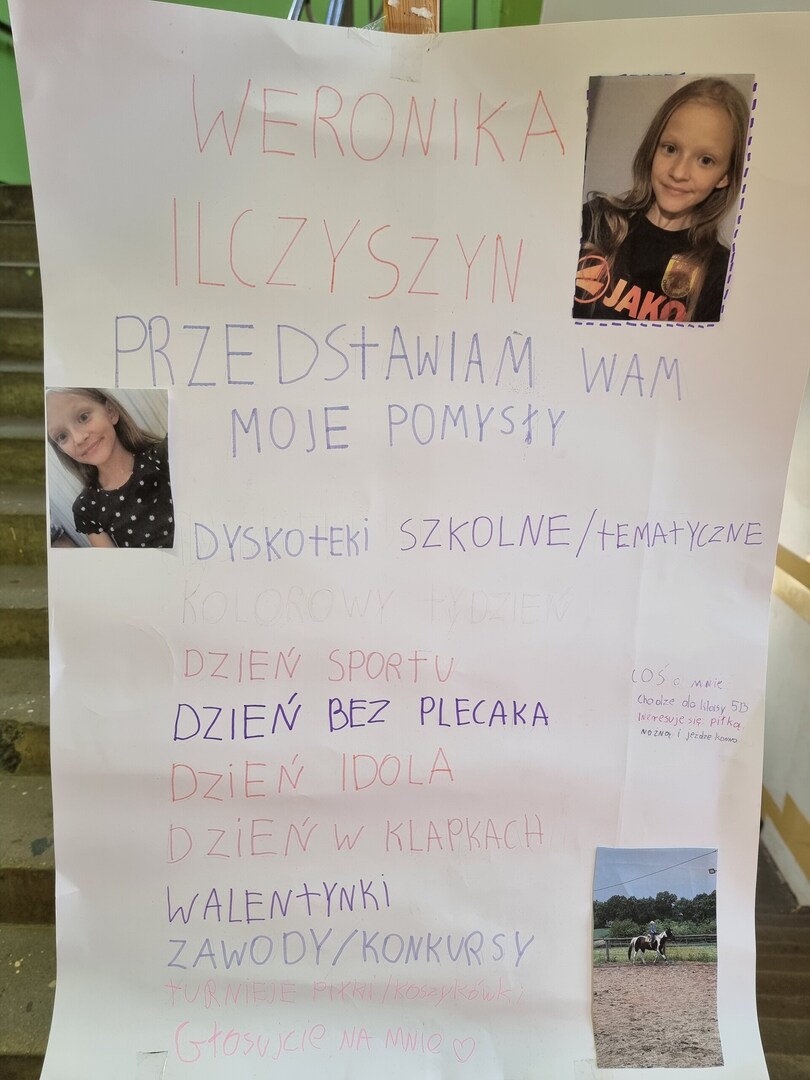 WERONIKA
ILCZYSZYN
PRZEDSTAWIAM WAM
MOJE POMYSŁY
JAKO
DYSKOTEKI SZKOLNE/TEMATYCZNE
KOLOROWY TYDZIEŃ
DZIEŃ SPORTU
DZIEŃ BEZ PLECAKA
DZIEŃ IDOLA
DZIEŃ W KLAPKACH
WALENTYNKI
ZAWODY/KONKURSY
TURNIEJE PIŁKI/KOSZYKÓWKI
Głosujcie NA MNIE ♡
COŚ o mnie
Chodze do klasy 5B
Interesuje się piłką
nożną i jeżdżę konno